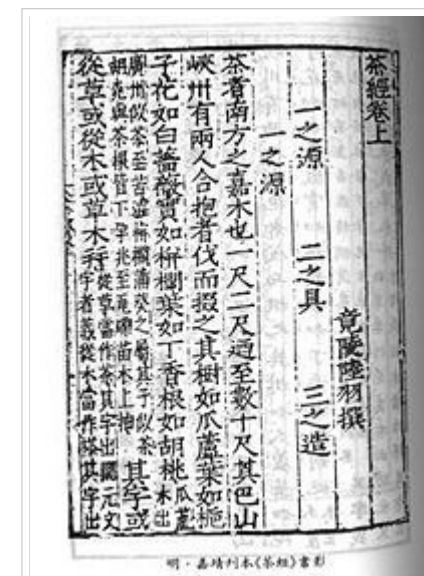 茶經卷上
竟陵陸羽撰
一之源 二之具 三之造
一之源
茶者南方之嘉木也一尺二尺迺至數十尺其巴山
峽州有兩人合抱者伐而掇之其樹如瓜蘆葉如梔
子花如白薔薇實如栟櫚葉如丁香根如胡桃瓜蘆木出
廣州似茶至苦澁栟櫚蒲葵之屬其子似茶
胡桃與茶根皆下孕兆至瓦礫苗木上抽
其字或
從草或從木或草木并
從草當作茶其字出開元文
字者義從木當作㮦其字出
明·嘉靖刊本《茶經》書影